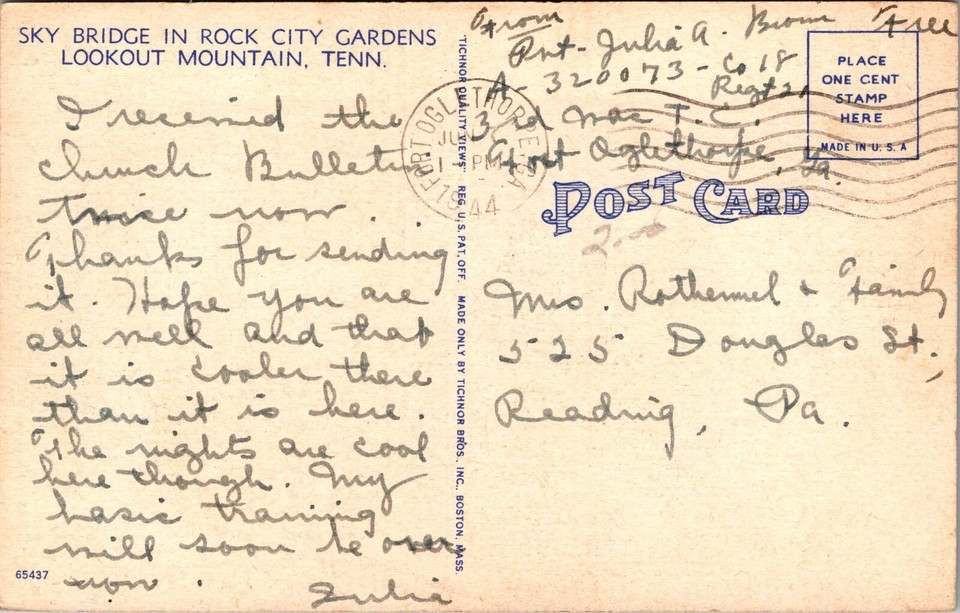 SKY BRIDGE IN ROCK CITY GARDENS
LOOKOUT MOUNTAIN, TENN.
I received the
church Bulletin
twice now.
Thanks for sending
it. Hope you are
all well and that
it is cooler there
than it is here.
The nights are cool
here though. My
basic training
will soon be over
now.
Julia
65437
"TICHNOR QUALITY VIEWS" REG. U.S. PAT. OFF. MADE ONLY BY TICHNOR BROS., INC., BOSTON, MASS.
From
Pvt. Julia A.
Free
A-320073-Co 18
Regt 21
3rd Wac T.C.
Fort Oglethorpe, Ga.
FORT OGLETHORPE
PM
1944
PLACE
ONE CENT
STAMP
HERE
MADE IN U.S.A
POST CARD
2.00
Mrs. Rothermel & Family
525 Douglas St.,
Reading, Pa.